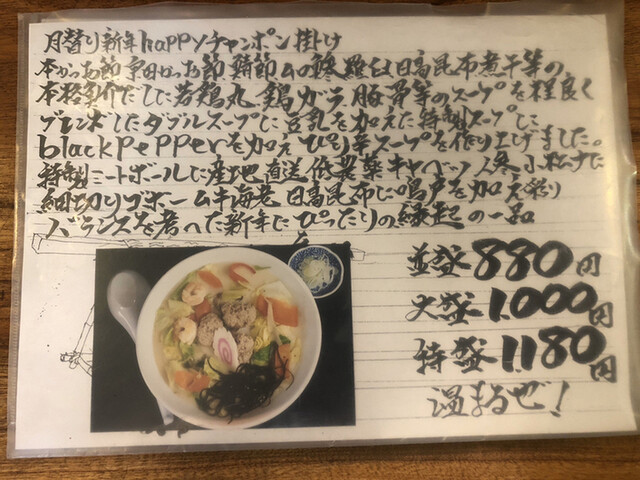 月替り新年happyチャンポン掛け
本かつお節宗田かつお節鯖節ムロ鯵羅臼日高昆布煮干等の
本格魚介だしに若鶏丸鶏ガラ豚骨等のスープを程良く
ブレンドしたダブルスープに豆乳を加えた特製スープに
blackpepperを加えぴり辛スープを作り上げました。
特製ミートボールに産地直送低農薬キャベツ人参小松菜に
細切りゴボームキ海老日高昆布に鳴戸を加え彩り
バランスを考へた新年にぴったりの縁起の一品
並盛880円
大盛1.000円
特盛1.180円
温まるぜ!